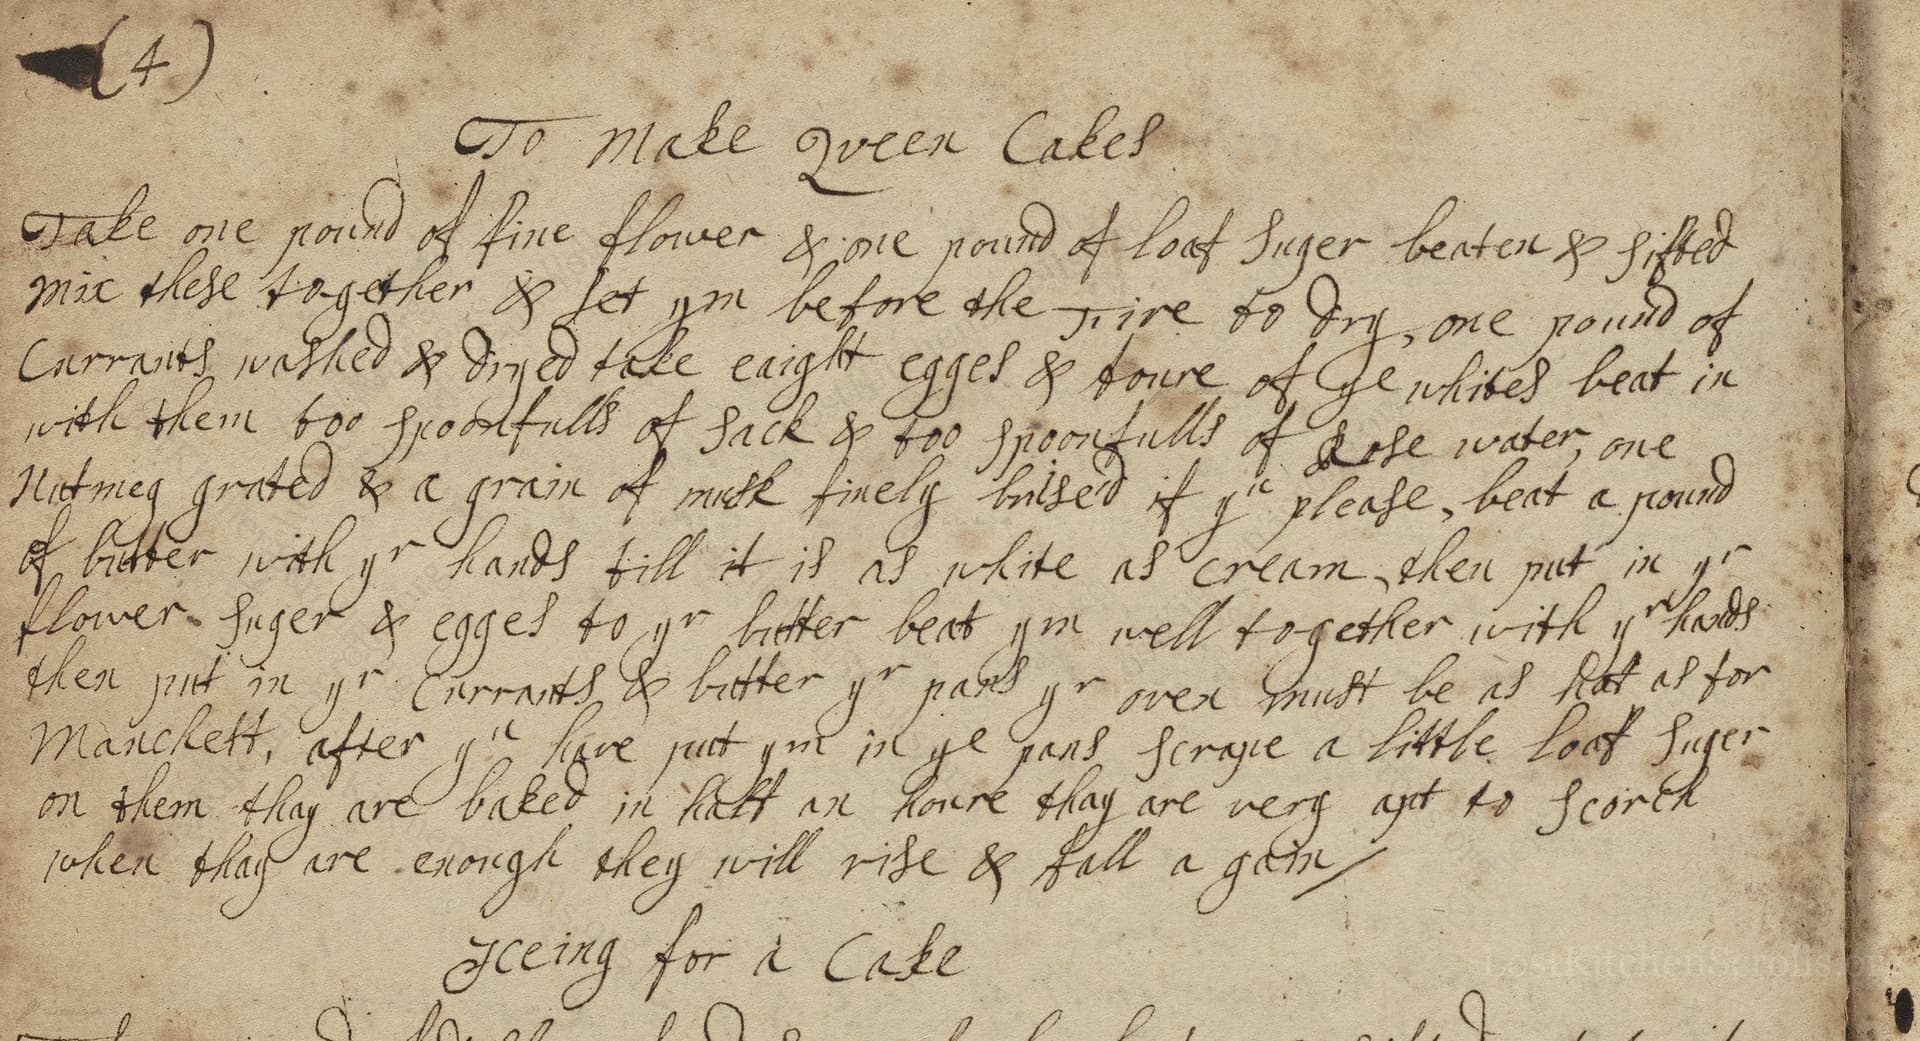 (4)
To Make Qveen Cakes
Take one pound of fine flower & one pound of loaf suger beaten & sifted
mix these together & set ym before the Fire to dry, one pound of
Currants washed & dryed take eaight egges & foure of ye whites beat in
with them too spoonfulls of sack & too spoonfulls of Rose water, one
Nutmeg grated & a grain of musk finely brised if yu please, beat a pound
of butter with yr hands till it is as white as cream, then put in yr
flower suger & egges to yr butter beat ym well together with yr hands
then put in yr Currants & butter yr pans yr oven must be as hot as for
Manchett, after yu have put ym in ye pans scrape a little loaf suger
on them thay are baked in half an houre thay are very apt to scorch
when thay are enough they will rise & fall a gain/
Iceing for a Cake
LostKitchenScrolls.org